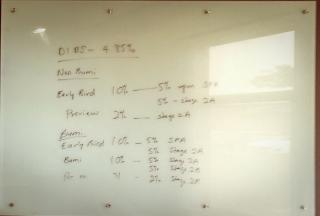 DIBS - 4.85%
Non Bumi
Early Bird 10% — 5% upon SPA
5% - Stage 2A
Preview 2% — Stage 2A
Bumi
Early Bird 10% - 5% SPA
5% Stage 2A
Bumi 10% - 5% Stage 2A
5% Stage 2B
2% Stage 2B